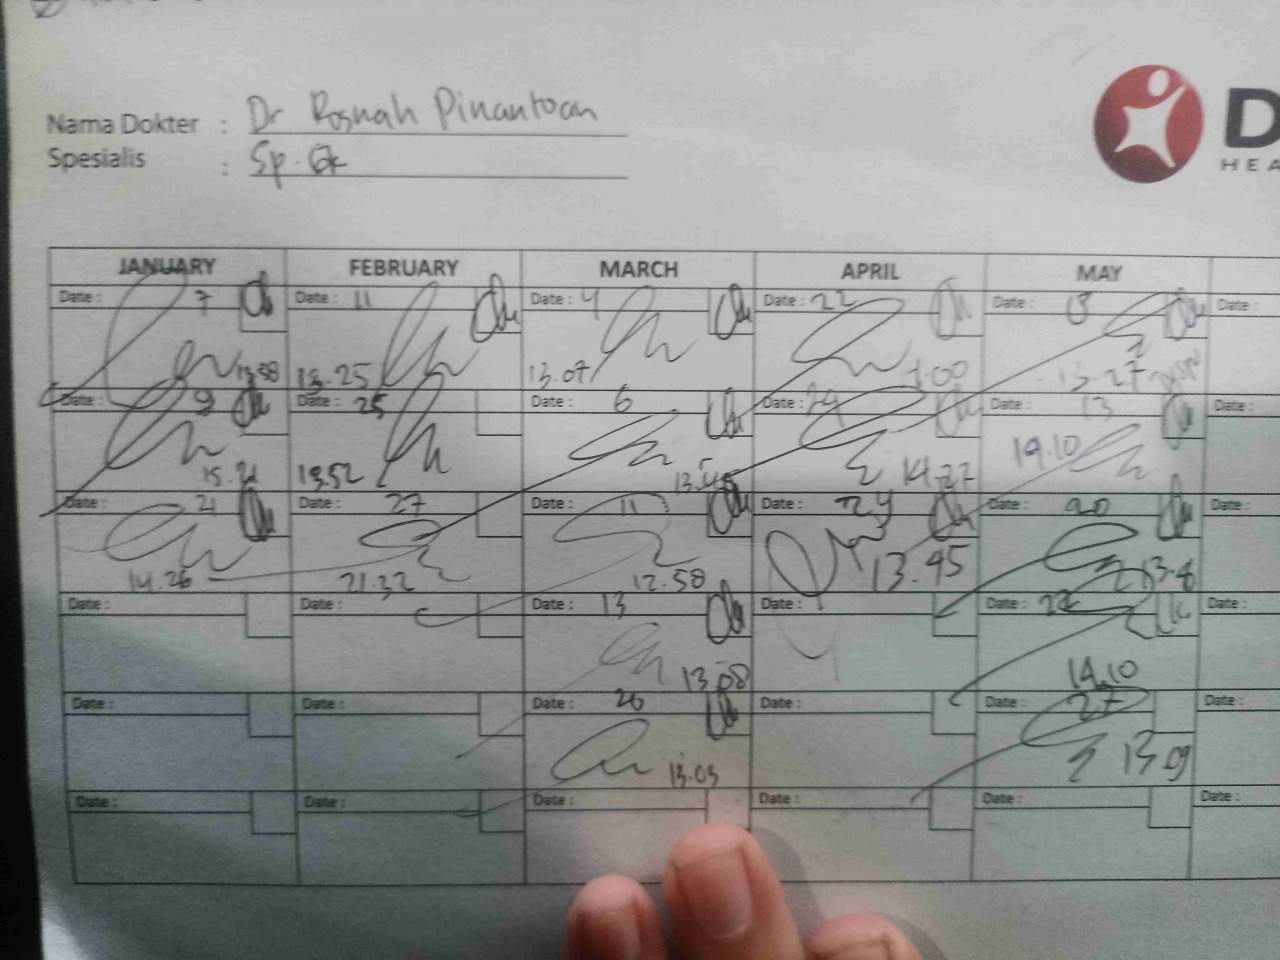 Nama Dokter : Dr Rosnah Pinantoan
Spesialis : Sp.
D
HEA
JANUARY FEBRUARY MARCH APRIL MAY
Date : 7 Date : 11 Date : 4 Date : 22 Date : Date :
13.58 13.25 13.07 13.27
Date : 9 Date : 25 Date : 6 Date : Date : 13 Date :
15.21 13.52 14.27 19.10
Date : 21 Date : 27 Date : 11 Date : 24 Date : 20 Date :
14.26 21.32 12.58 13.45
Date : Date : Date : 13 Date : Date : 22 Date :
13.08 14.10
Date : Date : Date : 20 Date : Date : 27 Date :
13.03 13 09
Date : Date : Date : Date : Date : Date :